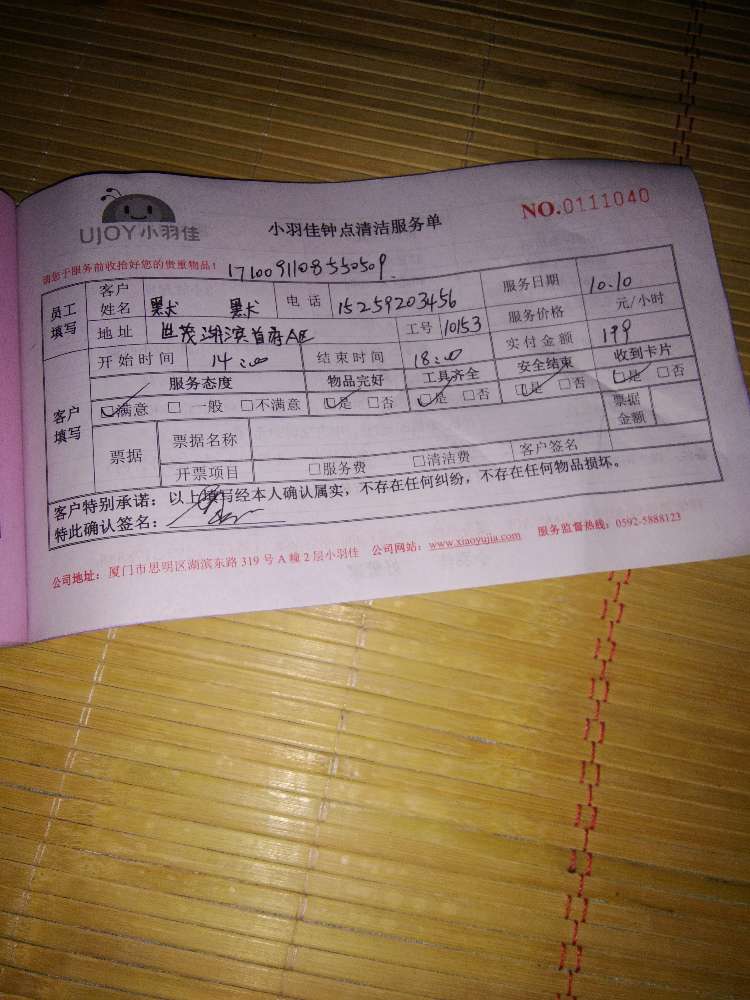 UJOY小羽佳
小羽佳钟点清洁服务单
NO.0111040
请您于服务前收拾好您的贵重物品! 171009110855050509
员工填写 客户姓名 电话 15259203456 服务日期 10.10
地址 世茂湖滨首府A区 工号 10153 服务价格 元/小时
客户填写 开始时间 14:00 结束时间 18:00 实付金额 199
服务态度 物品完好 工具齐全 安全结束 收到卡片
☑满意 □一般 □不满意 ☑是 □否 ☑是 □否 ☑是 □否 ☑是 □否
票据 票据名称 票据金额
开票项目 □服务费 □清洁费 客户签名
客户特别承诺:以上填写经本人确认属实,不存在任何纠纷,不存在任何物品损坏。
特此确认签名:
公司地址:厦门市思明区湖滨东路319号A幢2层小羽佳 公司网站:www.xiaoyujia.com 服务监督热线:0592-5888123